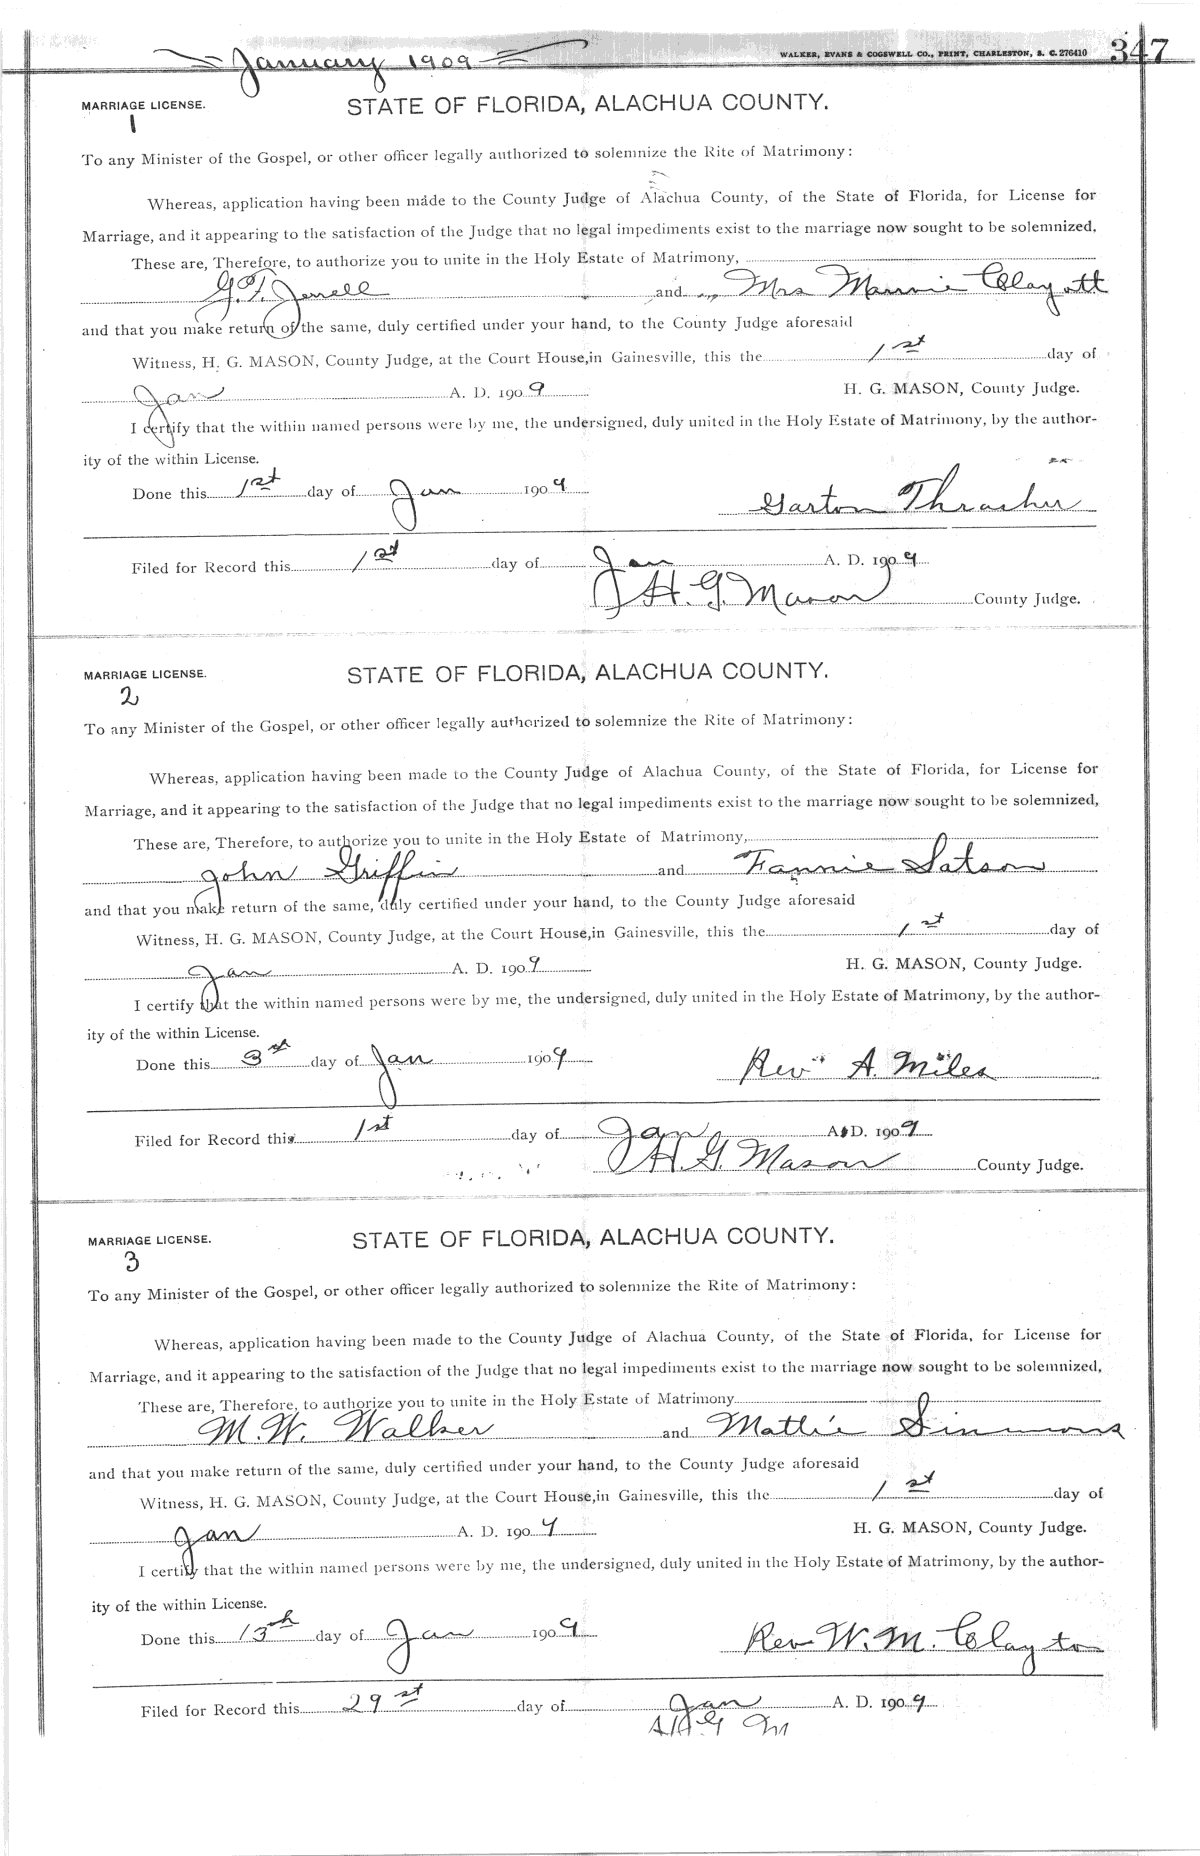 January 1909
WALKER, EVANS & COGSWELL CO., PRINT, CHARLESTON, S. C. 276410
347
MARRIAGE LICENSE.
STATE OF FLORIDA, ALACHUA COUNTY.
1
To any Minister of the Gospel, or other officer legally authorized to solemnize the Rite of Matrimony:
Whereas, application having been made to the County Judge of Alachua County, of the State of Florida, for License for
Marriage, and it appearing to the satisfaction of the Judge that no legal impediments exist to the marriage now sought to be solemnized,
These are, Therefore, to authorize you to unite in the Holy Estate of Matrimony,
G.T. and Mrs Mannie Clayott
and that you make return of the same, duly certified under your hand, to the County Judge aforesaid
Witness, H. G. MASON, County Judge, at the Court House, in Gainesville, this the 1st day of
Jan A. D. 1909 H. G. MASON, County Judge.
I certify that the within named persons were by me, the undersigned, duly united in the Holy Estate of Matrimony, by the author-
ity of the within License.
Done this 1st day of Jan 1909 Garton Thrasher
Filed for Record this 1st day of Jan A. D. 1909
H. G. Mason County Judge.
MARRIAGE LICENSE.
STATE OF FLORIDA, ALACHUA COUNTY.
2
To any Minister of the Gospel, or other officer legally authorized to solemnize the Rite of Matrimony:
Whereas, application having been made to the County Judge of Alachua County, of the State of Florida, for License for
Marriage, and it appearing to the satisfaction of the Judge that no legal impediments exist to the marriage now sought to be solemnized,
These are, Therefore, to authorize you to unite in the Holy Estate of Matrimony,
John Griffin and Fannie Satson
and that you make return of the same, duly certified under your hand, to the County Judge aforesaid
Witness, H. G. MASON, County Judge, at the Court House, in Gainesville, this the 1st day of
Jan A. D. 1909 H. G. MASON, County Judge.
I certify that the within named persons were by me, the undersigned, duly united in the Holy Estate of Matrimony, by the author-
ity of the within License.
Done this 3rd day of Jan 1909 Rev A. Miles
Filed for Record this 1st day of Jan A. D. 1909
H. G. Mason County Judge.
MARRIAGE LICENSE.
STATE OF FLORIDA, ALACHUA COUNTY.
3
To any Minister of the Gospel, or other officer legally authorized to solemnize the Rite of Matrimony:
Whereas, application having been made to the County Judge of Alachua County, of the State of Florida, for License for
Marriage, and it appearing to the satisfaction of the Judge that no legal impediments exist to the marriage now sought to be solemnized,
These are, Therefore, to authorize you to unite in the Holy Estate of Matrimony
M. W. Walker and Mattie Simmons
and that you make return of the same, duly certified under your hand, to the County Judge aforesaid
Witness, H. G. MASON, County Judge, at the Court House, in Gainesville, this the 1st day of
Jan A. D. 1909 H. G. MASON, County Judge.
I certify that the within named persons were by me, the undersigned, duly united in the Holy Estate of Matrimony, by the author-
ity of the within License.
Done this 13th day of Jan 1909 Rev W. M. Clayton
Filed for Record this 29st day of Jan A. D. 1909